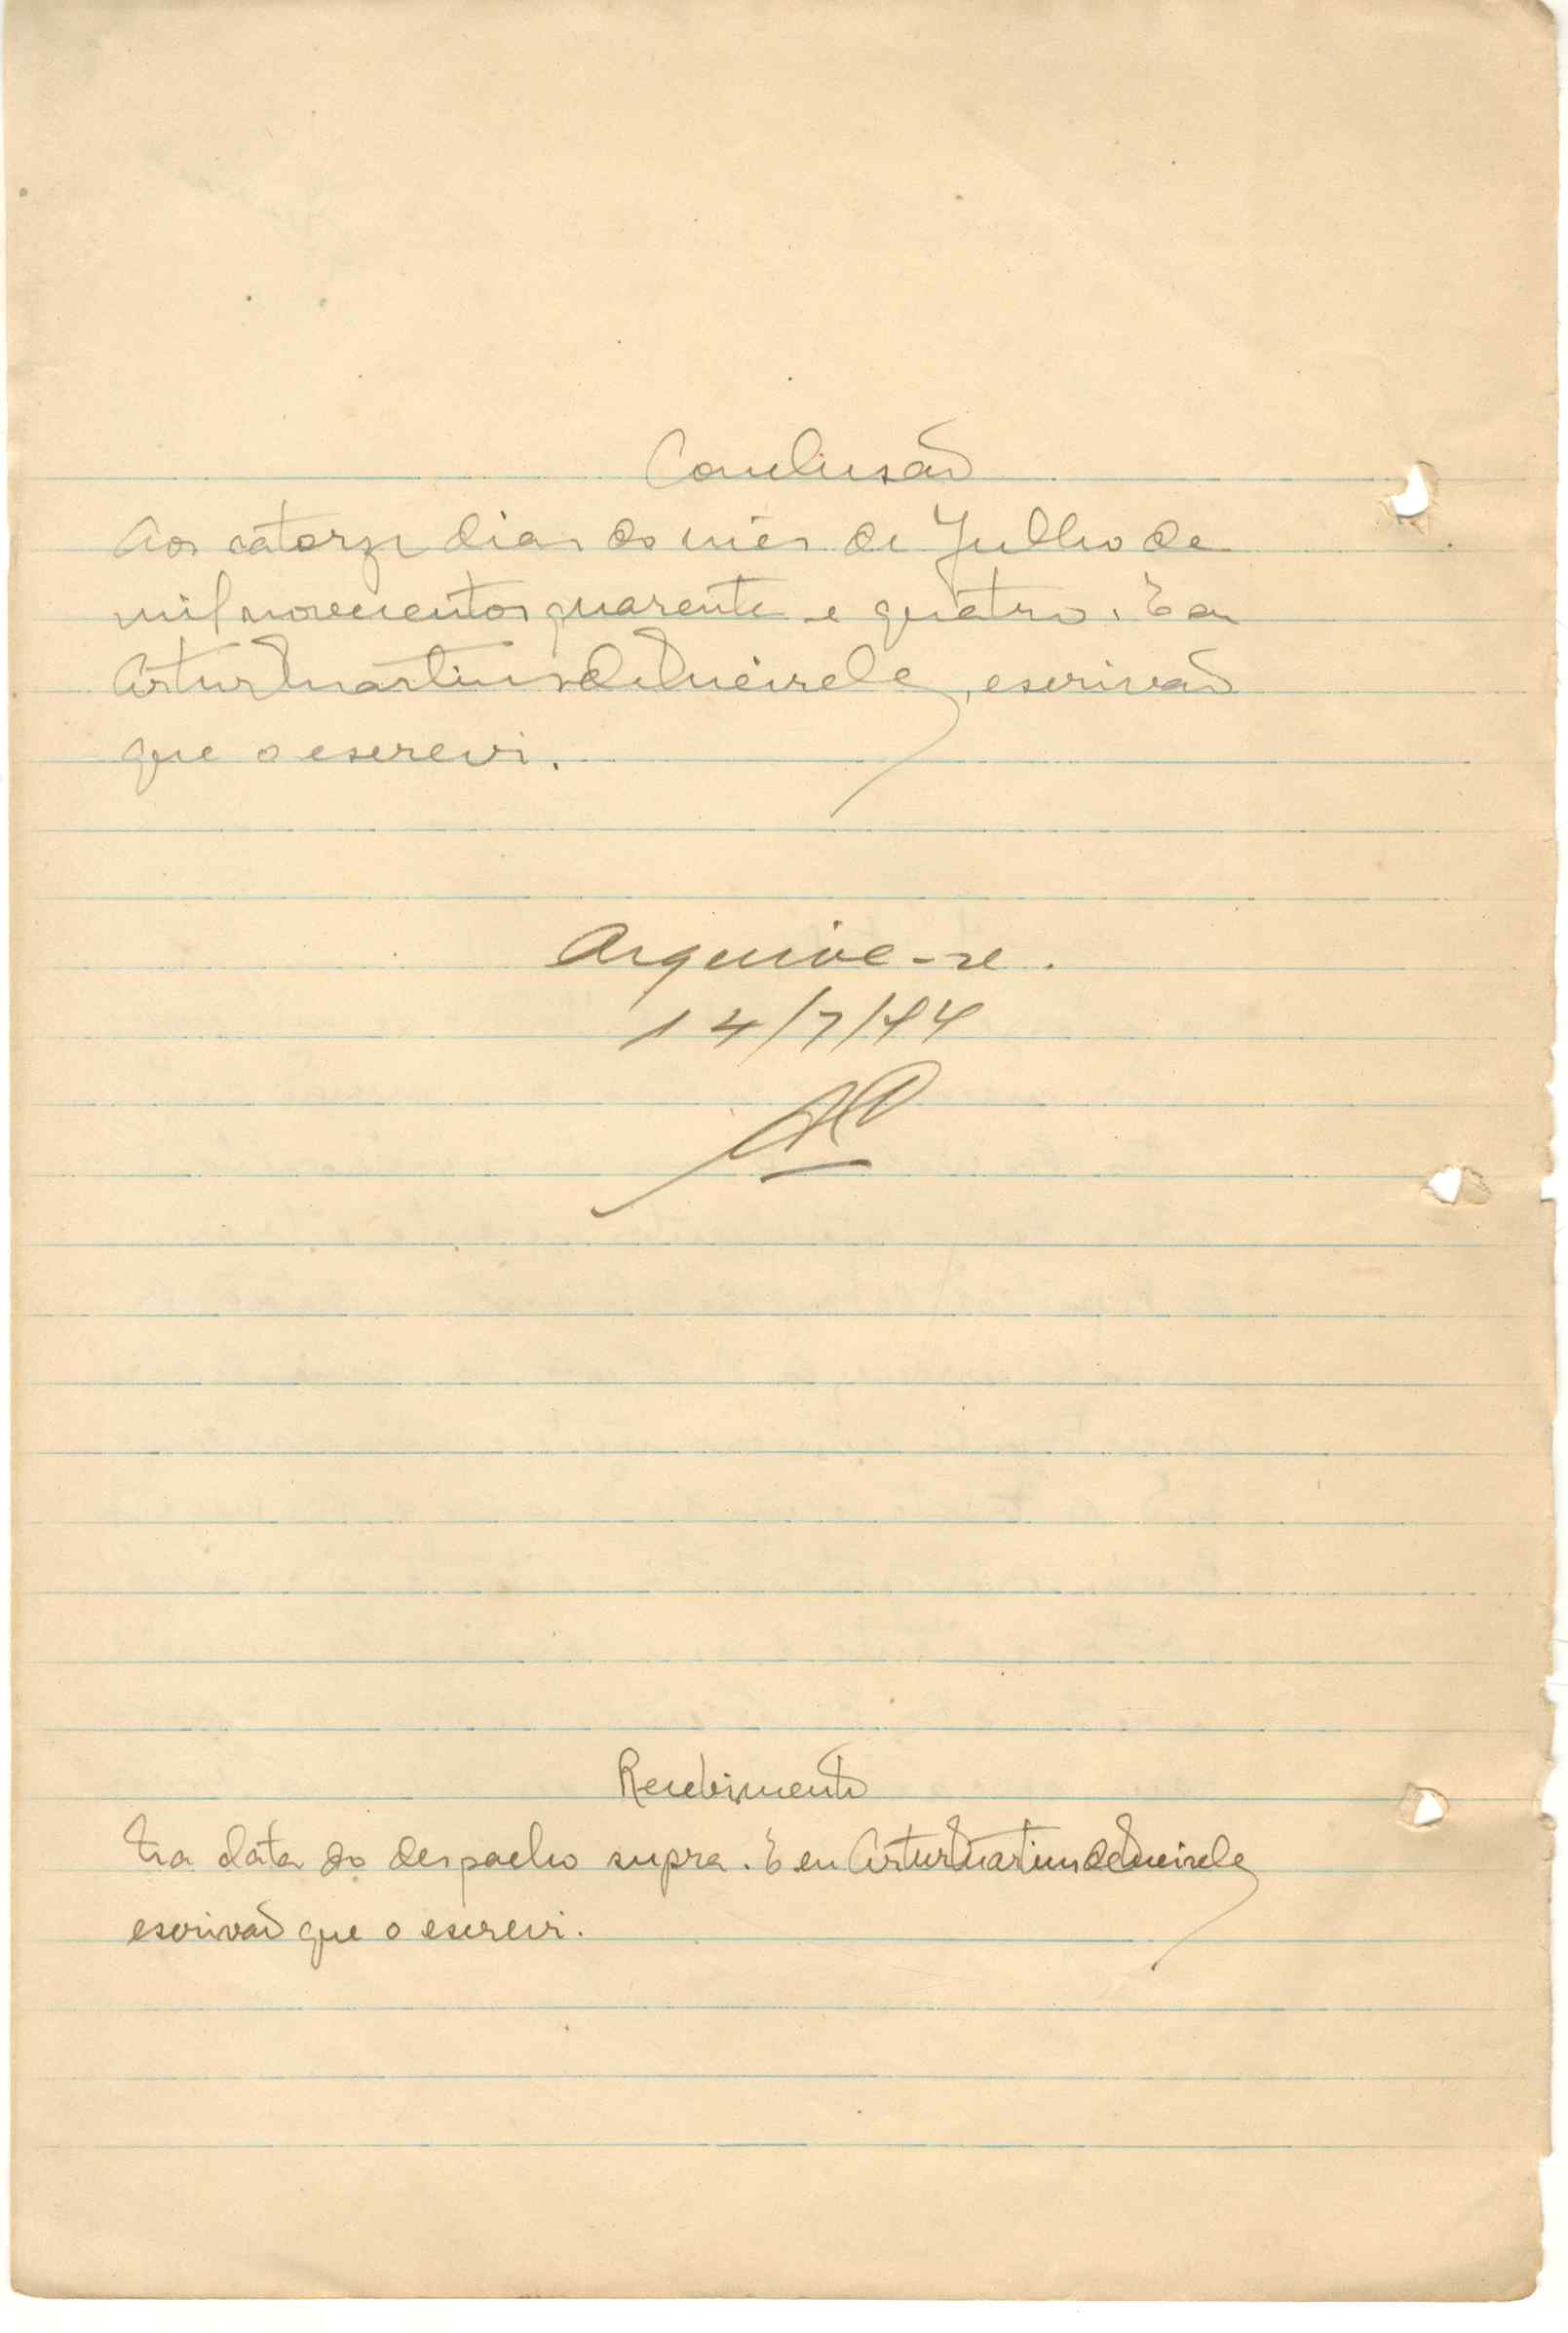 Conclusão
Aos catorze dias do mês de Julho de
mil novecentos quarenta e quatro. E eu
Artur Martins de Meireles, escrivão
que o escrevi.
Arquive-se.
14/7/44
Recebimento
Na data do despacho supra. E eu Artur Martins de Meireles
escrivão que o escrevi.